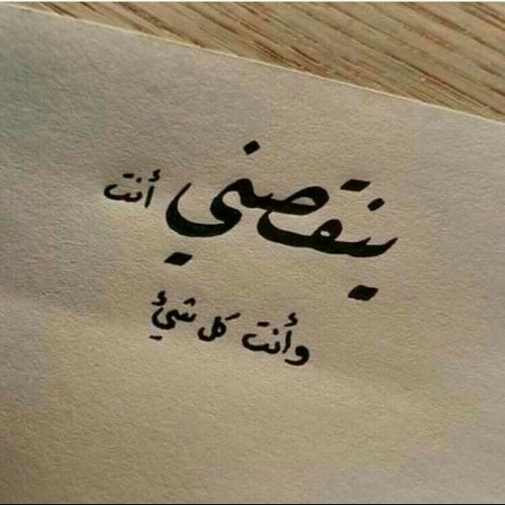 ينقصني أنت
وأنت كل شئ